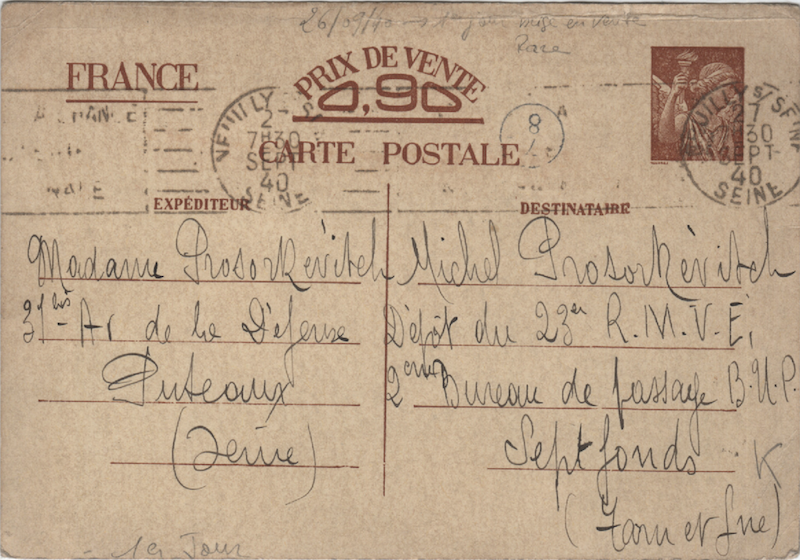 26/09/40 1er jour mise en vente
Rare
FRANCE
PRIX DE VENTE
0,90
CARTE POSTALE
NEUILLY S
2 -
7H30
SEPT
40
SEINE
8
UILLY S/ SEINE
7 30
SEPT
40
SEINE
EXPÉDITEUR
DESTINATAIRE
Madame Prosorkévitch
31bis Av de la Défense
Puteaux
(Seine)
Michel Prosorkévitch
Dépôt du 23er R.M.V.E,
2ème Bureau de passage B.U.P.
Septfonds
K
(Tarn et Gne)
- 1er Jour